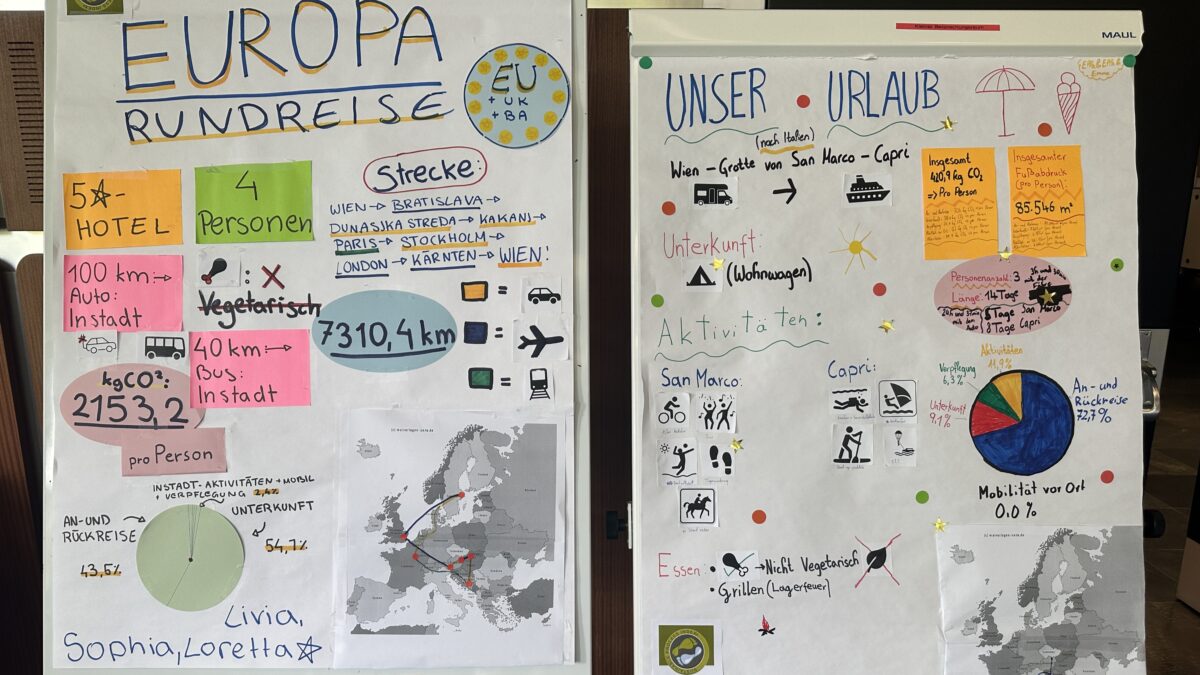 EUROPA
RUNDREISE
EU
+ UK
+ BA
5☆-
HOTEL
4
Personen
Strecke:
WIEN → BRATISLAVA →
DUNAJSKA STREDA → KAKANJ →
PARIS → STOCKHOLM →
LONDON → KÄRNTEN → WIEN!
100 km: →
Auto:
Instadt
: X
Vegetarisch
7310,4 km
=
=
=
40 km: →
Bus:
Instadt
kgCO²:
2153,2
pro Person
INSTADT- AKTIVITÄTEN + MOBIL
+ VERPFLEGUNG 2,4%
AN-UND
RÜCKREISE
43,5%
UNTERKUNFT
54,7%
Livia,
Sophia, Loretta☆
MAUL
UNSER URLAUB
(nach Italien)
Emma
Wien – Grotte von San Marco – Capri
Insgesamt
420,9 kg CO₂
=> Pro Person
Insgesamter
Fußabdruck
(pro Person):
85.546 m²
Unterkunft:
(Wohnwagen)
Personenanzahl: 3
Länge: 14 Tage
8 Tage San Marco
8 Tage Capri
Aktivitäten:
San Marco:
Capri:
Aktivitäten
11,9%
Verpflegung
6,3%
Unterkunft
9,1%
An- und
Rückreise
72,7%
Mobilität vor Ort
0.0 %
Essen: • → Nicht Vegetarisch
• Grillen (Lagerfeuer)